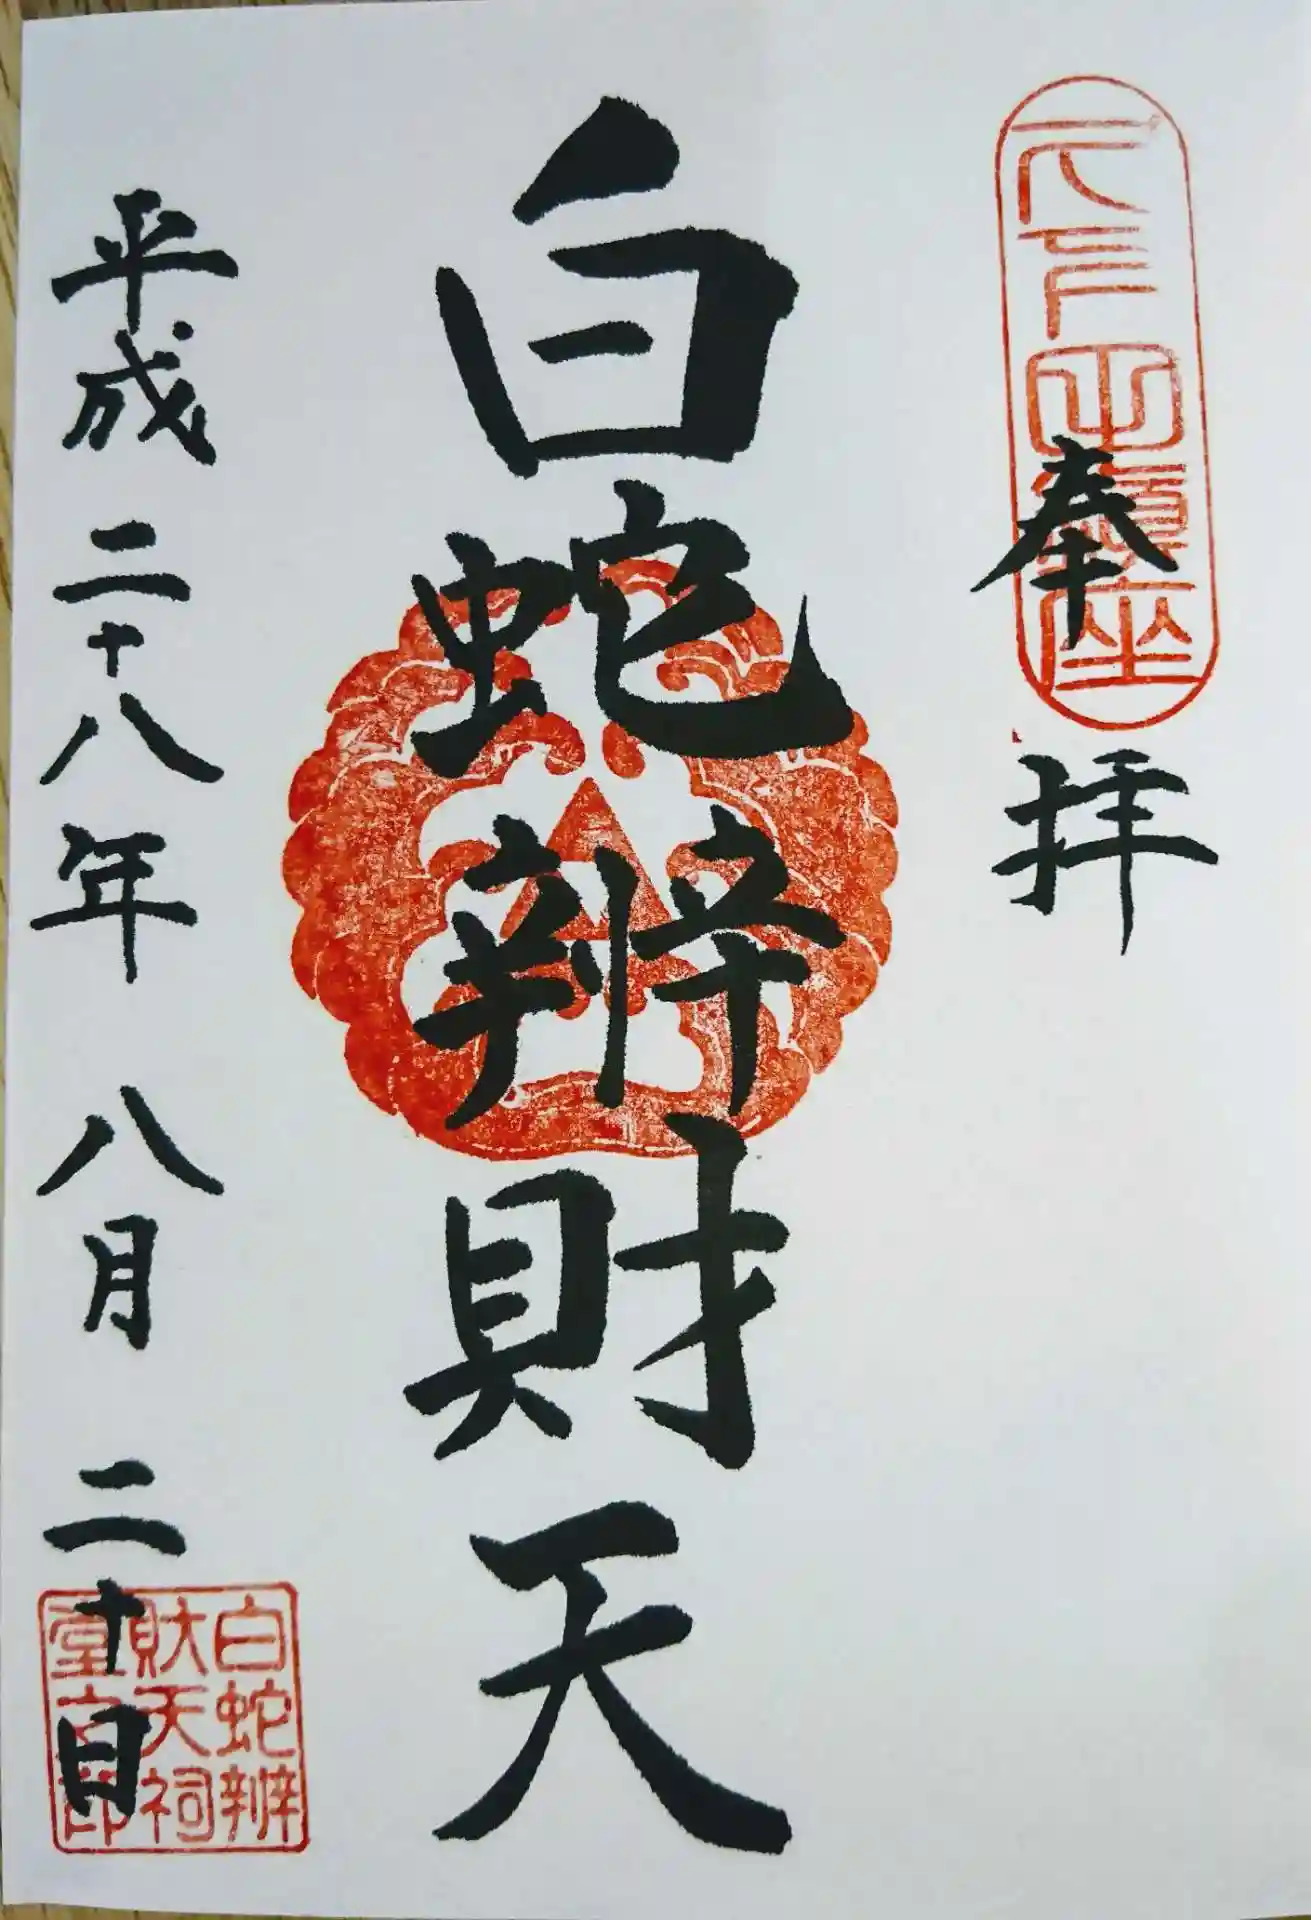 鎮座
奉拝
白蛇辨財天
平成二十八年八月二十日
白蛇辨
財天祠